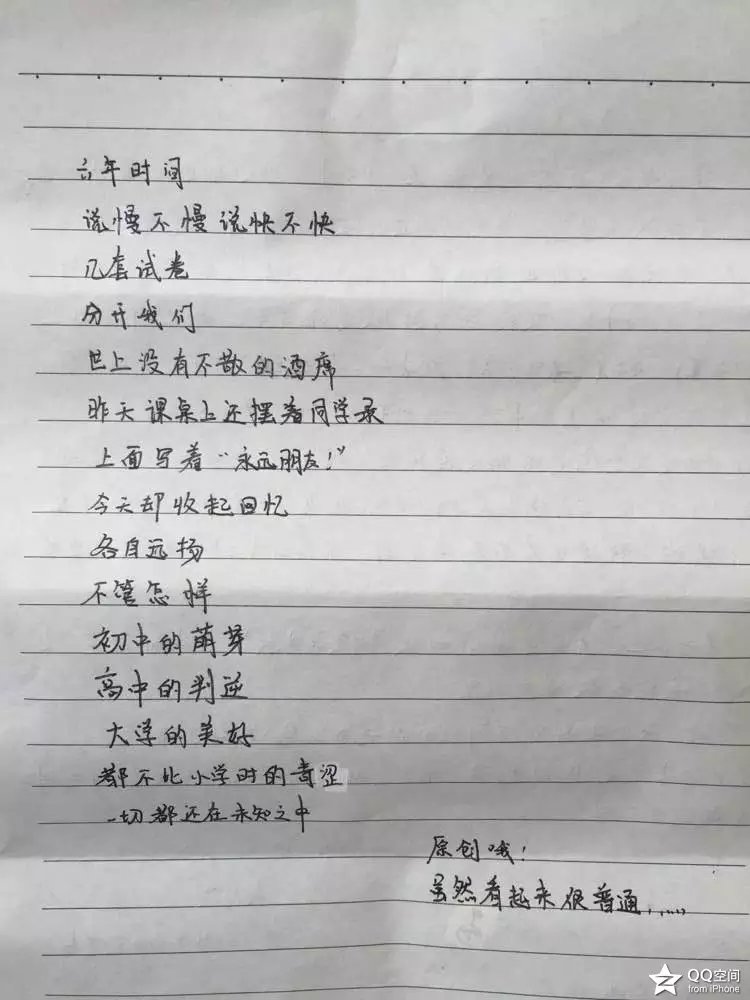 六年时间
说慢不慢说快不快
几套试卷
分开我们
世上没有不散的酒席
昨天课桌上还摆着同学录
上面写着“永远朋友！”
今天却收起回忆
各自远扬
不管怎样
初中的萌芽
高中的判逆
大学的美好
都不比小学时的青涩
一切都还在未知之中
原创哦！
虽然看起来很普通……
QQ空间
from iPhone